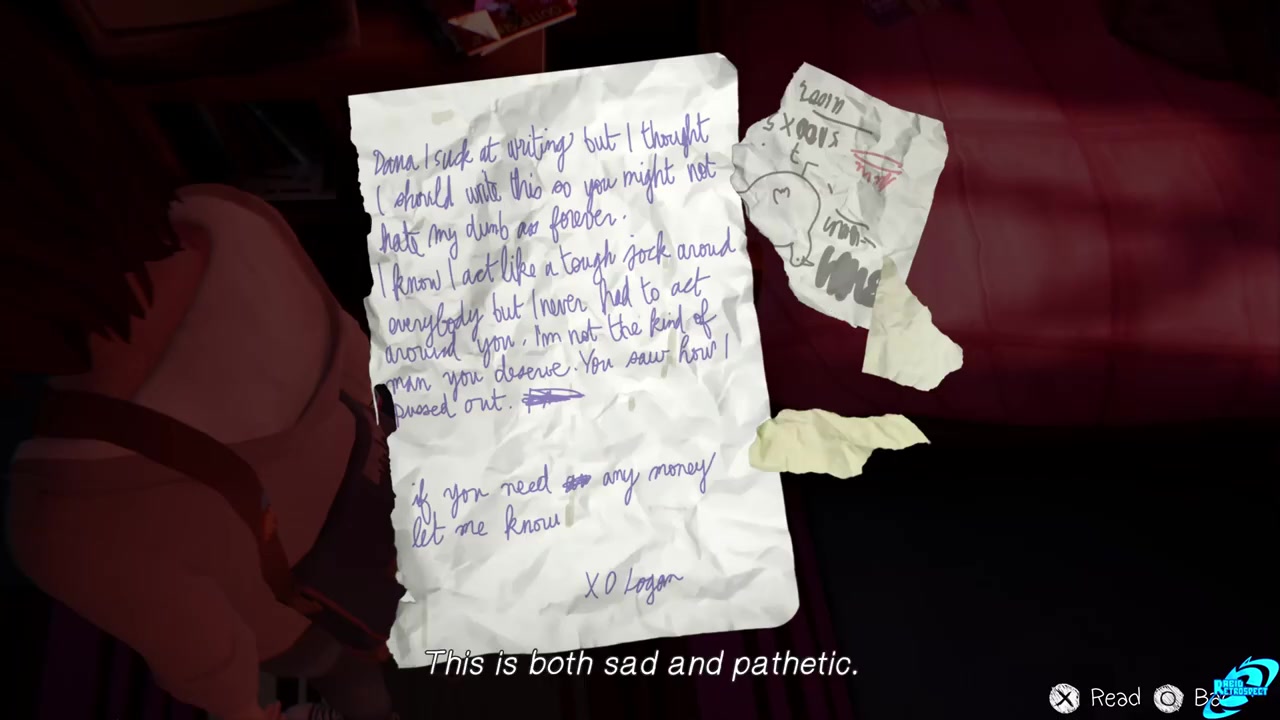 Dana I suck at writing but I thought
I should write this so you might not
hate my dumb ass forever.
I know I act like a tough jock aroud
everybody but I never had to act
around you. I'm not the kind of
man you deserve. You saw how I
pussed out.
if you need any money
let me know
XO Logan
room
This is both sad and pathetic.
Read
RETROSPECT